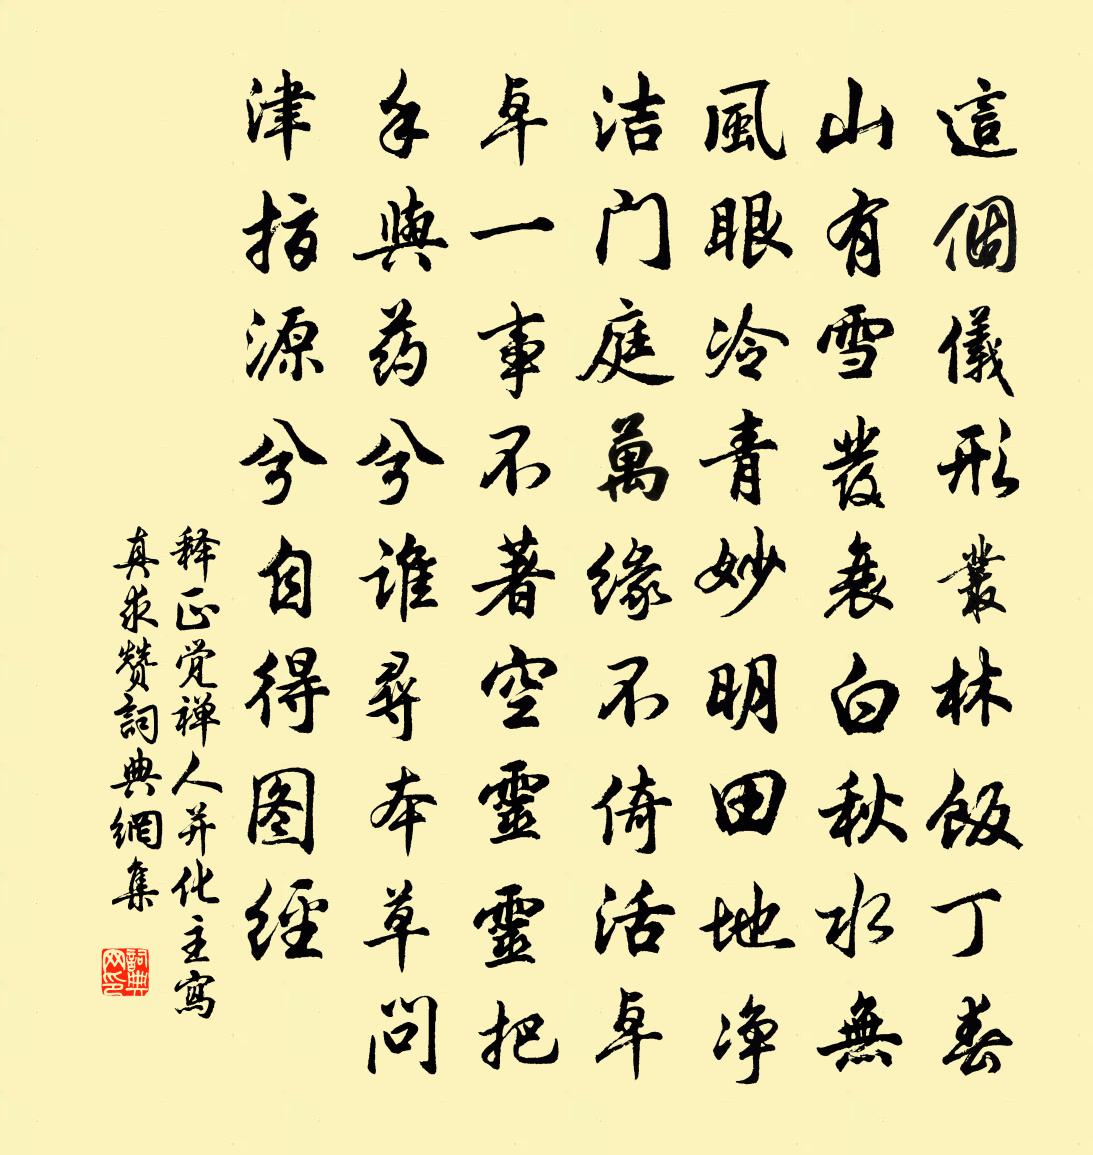 這個儀形叢林飯丁春
山有雪發衰白秋水無
風眼冷青妙明田地净
洁门庭萬缘不倚活卓
卓一事不著空靈靈把
手與药兮谁尋本草問
津指源兮自得图經
释正觉禅人并化主寫
真求赞詞典網集
詞典网印